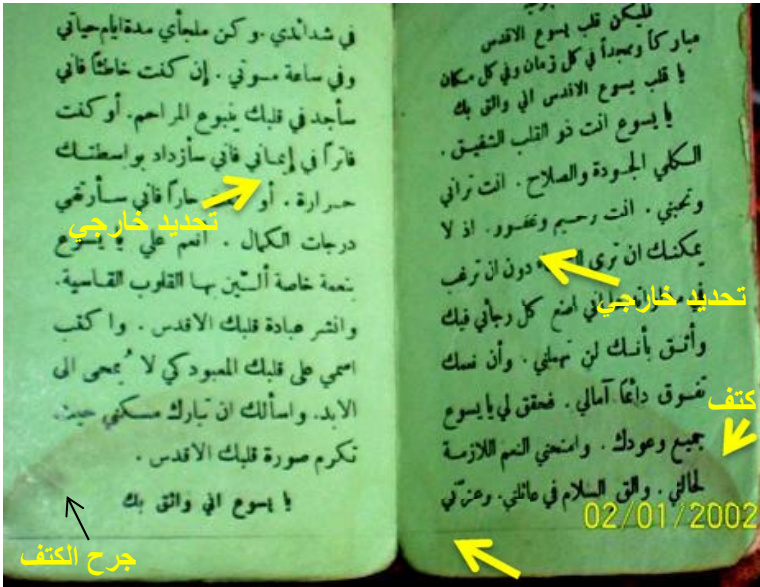 فليكن قلب يسوع الاقدس
مباركاً وممجداً في كل زمان وفي كل مكان
يا قلب يسوع الاقدس اني واثق بك
يا يسوع انت ذو القلب الشفيق .
الكلي الجودة والصلاح . انت تراني
وتحبني . انت رحيم وغفور . اذ لا
يمكنك ان ترى دون ان ترغب
في اني اضع كل رجائي فيك
وأثق بأنك لن تهملني . وأن نعمك
تفوق دائماً آمالي . فحقق لي يا يسوع
جميع وعودك . وامنحني النعم اللازمة
لحالتي . والق السلام في عائلتي . وعزّني
في شدائدي . وكن ملجأي مدة ايام حياتي
وفي ساعة موتي . إن كنت خاطئاً فاني
سأجد في قلبك ينبوع المراحم . أو كنت
فاتراً في إيماني فاني سأزداد بواسطتك
حرارة . أو حاراً فاني سأرتقي
درجات الكمال . انعم علي يا يسوع
بنعمة خاصة ألـيّن بها القلوب القاسية .
وانشر عبادة قلبك الاقدس . واكتب
اسمي على قلبك المعبود كي لا يُمحى الى
الابد . واسألك ان تبارك مسكني حيث
تكرم صورة قلبك الاقدس .
يا يسوع اني واثق بك
تحديد خارجي
تحديد خارجي
كتف
جرح الكتف
02/01/2002